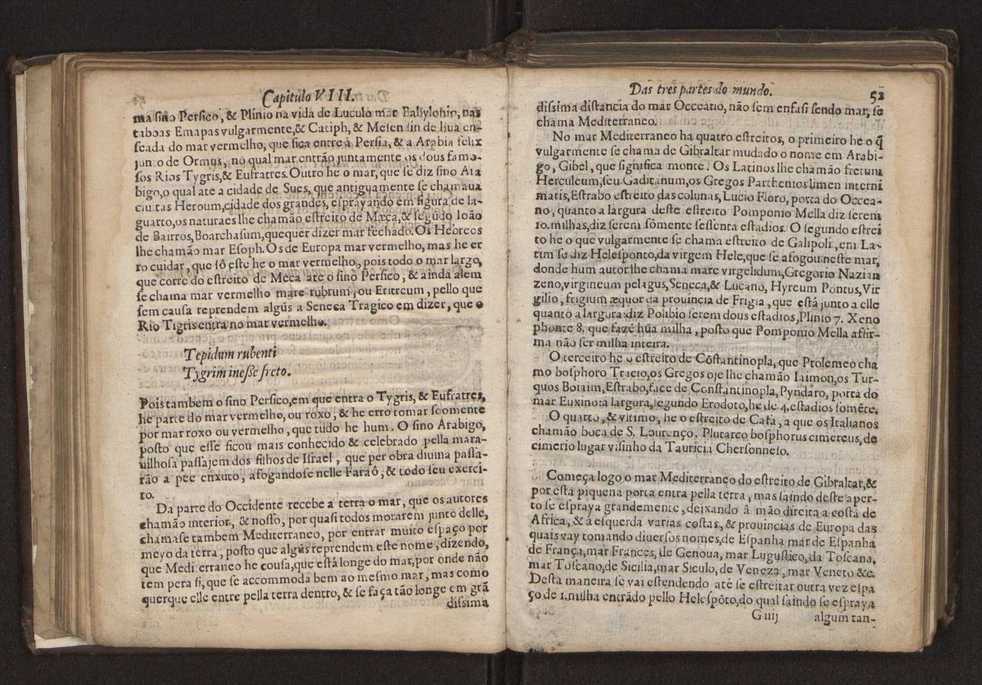 Capitulo VIII.
ma sino Persico, & Plinio na vida de Luculo mar Babylonin, nas
taboas Emapas vulgarmente, & Catiph, & Mesen sin de hua en-
seada do mar vermelho, que fica entre à Persia, & a Arabia felix
junto de Ormus, no qual mar entrão juntamente os dous famo-
sos Rios Tygris, & Eufrattes. Outro he o mar, que se diz sino Ara
bigo, o qual ate a cidade de Sues, que antiguamente se chamaua
ciuitas Heroum, cidade dos grandes, esprayando em figura de la-
guarto, os naturaes lhe chamão estreito de Meca, & segũdo Ioão
de Bairros, Boarchasum, que quer dizer mar fechado. Os Hebreos
lhe chamão mar Esoph. Os de Europa mar vermelho, mas he er
ro cuidar, que só este he o mar vermelho, pois todo o mar largo,
que corre do estreito de Meca ate o sino Persico, & ainda alem
se chama mar vermelho mare rubrum, ou Eritreum, pello que
sem causa reprendem algũs a Seneca Tragico em dizer, que o
Rio Tigris entra no mar vermelho.
Tepidum rubenti
Tygrim inesse freto.
Pois tambem o sino Persico, em que entra o Tygris, & Eufrattes,
he parte do mar vermelho, ou roxo, & he erro tomar seomente
por mar roxo ou vermelho, que tudo he hum. O sino Arabigo,
posto que esse ficou mais conhecido & celebrado pella mara-
uilhosa passajem dos filhos de Israel, que per obra diuina passa-
rão a pee enxuto, afogandose nelle Faraô, & todo seu exerci-
to.
Da parte do Occidente recebe a terra o mar, que os autores
chamão interior, & nosso, por quasi todos morarem junto delle,
chamase tambem Mediterraneo, por entrar muito espaço por
meyo da terra, posto que algũs reprendem este nome, dizendo,
que Mediterraneo he cousa, que està longe do mar, por onde não
tem pera si, que se accommoda bem ao mesmo mar, mas como
querque elle entre pella terra dentro, & se faça tão longe em grã
dissima
Das tres partes do mundo.
52
dissima distancia do mar Occeano, não sem enfasi sendo mar, se
chama Mediterraneo.
No mar Mediterraneo ha quatro estreitos, o primeiro he o q̃
vulgarmente se chama de Gibraltar mudado o nome em Arabi-
go, Gibel, que significa monte. Os Latinos lhe chamão fretum
Herculeum, seu Gaditanum, os Gregos Parthentos limen interni
matis, Estrabo estreito das colunas, Lucio Floro, porta do Occea-
no, quanto a largura deste estreito Pomponio Mella diz serem
10. milhas, diz serem sómente sessenta estadios. O segundo estrei
to he o que vulgarmente se chama estreito de Galipoli, em La-
tim se diz Helesponto, da virgem Hele, que se afogou neste mar,
donde hum autor lhe chama mare virgelidum, Gregorio Nazian
zeno, virgineum pelagus, Seneca, & Lucano, Hyreum Pontus, Vir
gilio, frigium æquor da prouincia de Frigia, que està junto a elle
quanto a largura diz Polibio serem dous estadios, Plinio 7. Xeno
phonte 8. que fazẽ hũa milha, posto que Pomponio Mella affir-
ma não ser milha inteira.
O terceiro he o estreito de Cõstantinopla, que Ptolemeo cha
mo bosphoro Tracio, os Gregos oje lhe chamão Iaimon, os Tur-
quos Boraim, Estrabo, face de Constantinopla, Pyndaro, porta do
mar Euxino a largura, segundo Erodoto, he de 4. estadios somẽte.
O quarto, & vltimo, he o estreito de Cafà, a que os Italianos
chamão boca de S. Lourenço. Plutarco bosphorus cimereus, de
cimerio lugar visinho da Tauricia Chersonneso.
Começa logo o mar Mediterraneo do estreito de Gibraltar, &
por esta piquena porta entra pella terra, mas saindo deste aper-
to se espraya grandemente, deixando â mão direita a costa de
Africa, & à esquerda varias costas, & prouincias de Europa das
quais vay tomando diuersos nomes, de Espanha mar de Espanha
de França, mar Frances, de Genoua, mar Lugustico, da Toscana,
mar Toscano, de Sicilia, mar Siculo, de Veneza, mar Veneto &c.
Desta maneira se vai estendendo atè se estreitar outra vez espa
ço de 1. milha entrãdo pello Helespõto, do qual saindo se espraya
G iiij algum tan-